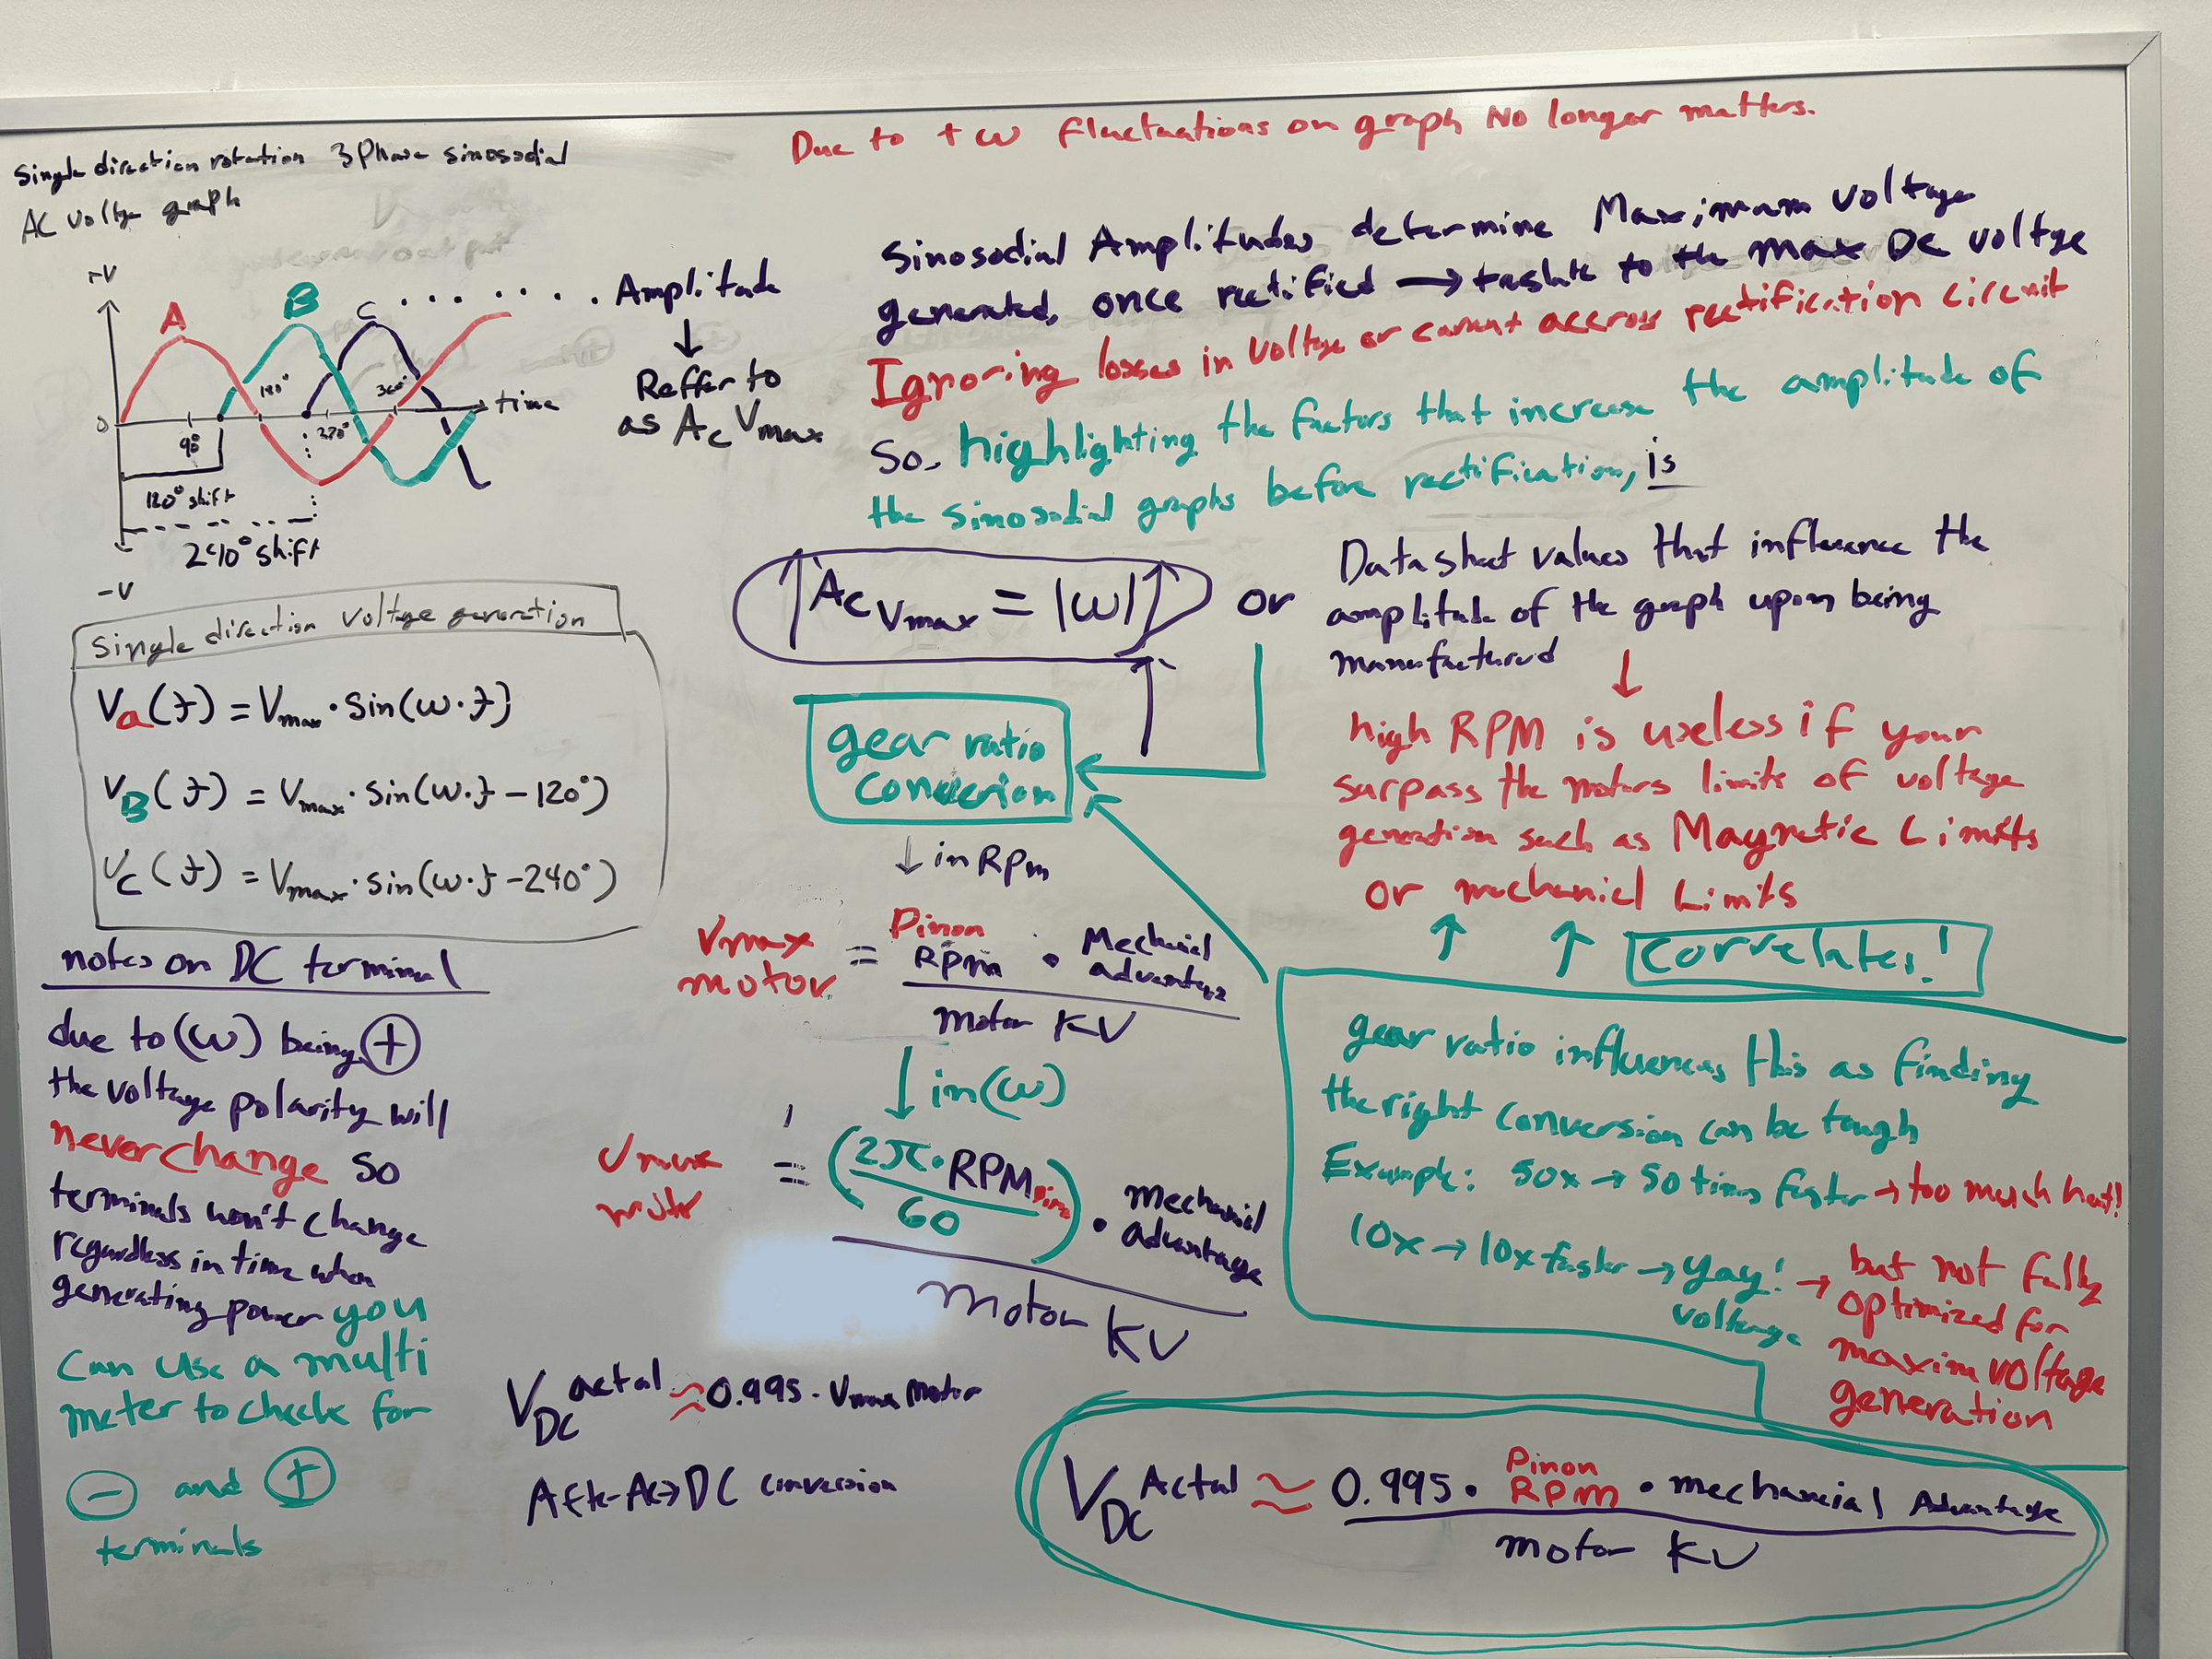 Single direction rotation 3 Phase sinosodial
AC voltge graph
+V
A
B
C
Amplitude
Reffer to
as Ac Vmax
0
90°
180°
270°
360°
time
120° shift
240° shift
-V
Single direction voltage generation
Va(t) = Vmax · Sin(ω·t)
VB(t) = Vmax · Sin(ω·t - 120°)
Vc(t) = Vmax · Sin(ω·t - 240°)
notes on DC terminal
due to (ω) being +
the voltage polarity will
never change so
terminals won't change
regardless in time when
generating power you
can use a multi
meter to check for
- and +
terminals
Due to +ω fluctuations on graph No longer matters.
Sinosodial Amplitudes determine Maximum voltage
generated, once rectified → traslate to the max DC voltge
Ignoring losses in voltge or current accross rectification circuit
So, highlighting the factors that increase the amplitude of
the sinosodial graphs before rectification, is
↑ Ac Vmax = |ω| ↑ or
Datasheet values that influence the
amplitude of the graph upon being
manufactured
high RPM is useless if your
surpass the motors limits of voltage
generation such as Magnetic Limits
or mechanicl Limits
Correlates!
gear ratio
conversion
↓ in Rpm
Vmax motor = Pinon Rpm · Mechanical advantage / motor KV
↓ in (ω)
Vmax motor = (2π · RPM / 60) · mechanical advantage / Motor KV
VDC actal ≈ 0.995 · Vmax Motor
After Ac→DC conversion
gear ratio influences this as finding
the right conversion can be tough
Example: 50x → 50 times faster → too much heat!
10x → 10x faster → yay! voltage → but not fully
optimized for
maxim voltage
generation
VDC Actal ≈ 0.995 · Pinon Rpm · mechancial Advantage / motor KV